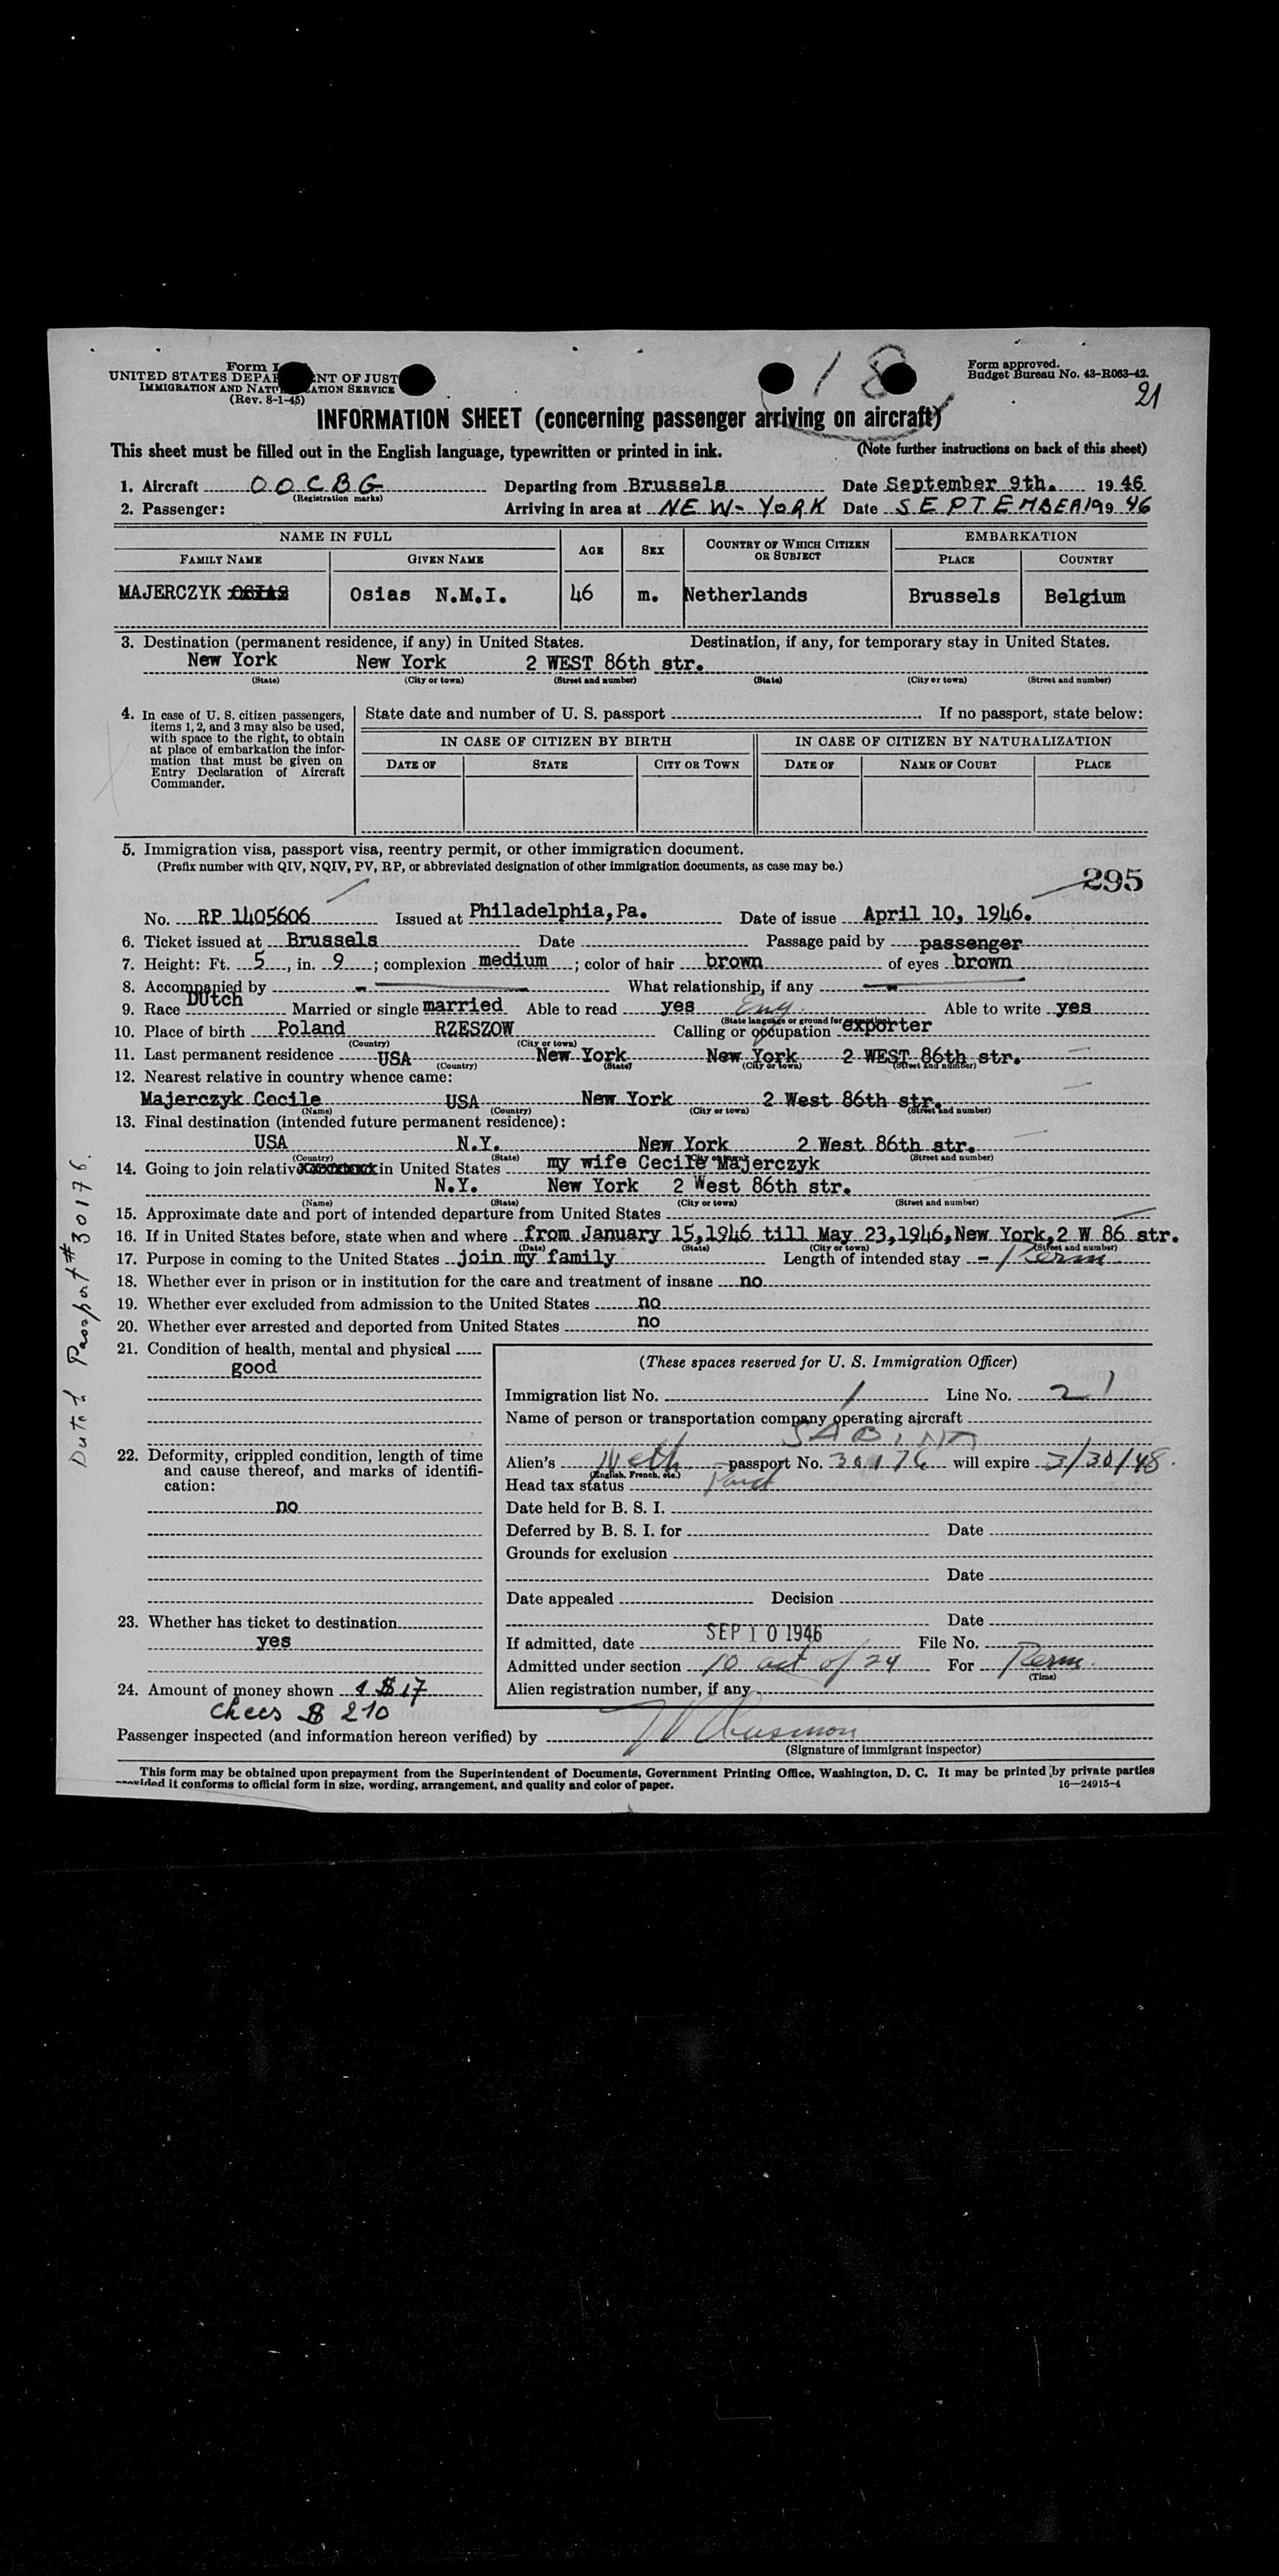 18
Form I
UNITED STATES DEPA NT OF JUST
IMMIGRATION AND NATU ATION SERVICE
(Rev. 8-1-45)
Form approved.
Budget Bureau No. 43-R063-42.
21
INFORMATION SHEET (concerning passenger arriving on aircraft)
This sheet must be filled out in the English language, typewritten or printed in ink. (Note further instructions on back of this sheet)
1. Aircraft OOCBG Departing from Brussels Date September 9th. 1946
(Registration marks)
2. Passenger: Arriving in area at NEW-YORK Date SEPTEMBER 1946
NAME IN FULL AGE SEX COUNTRY OF WHICH CITIZEN OR SUBJECT EMBARKATION
FAMILY NAME GIVEN NAME PLACE COUNTRY
MAJERCZYK OSIAS Osias N.M.I. 46 m. Netherlands Brussels Belgium
3. Destination (permanent residence, if any) in United States. Destination, if any, for temporary stay in United States.
New York New York 2 WEST 86th str.
(State) (City or town) (Street and number) (State) (City or town) (Street and number)
4. In case of U. S. citizen passengers, items 1, 2, and 3 may also be used, with space to the right, to obtain at place of embarkation the information that must be given on Entry Declaration of Aircraft Commander.
State date and number of U. S. passport If no passport, state below:
IN CASE OF CITIZEN BY BIRTH IN CASE OF CITIZEN BY NATURALIZATION
DATE OF STATE CITY OR TOWN DATE OF NAME OF COURT PLACE
5. Immigration visa, passport visa, reentry permit, or other immigration document.
(Prefix number with QIV, NQIV, PV, RP, or abbreviated designation of other immigration documents, as case may be.)
295
No. RP 1405606 Issued at Philadelphia,Pa. Date of issue April 10, 1946.
6. Ticket issued at Brussels Date Passage paid by passenger
7. Height: Ft. 5, in. 9; complexion medium; color of hair brown of eyes brown
8. Accompanied by - What relationship, if any -
9. Race DUtch Married or single married Able to read yes Eng. Able to write yes
(State language or ground for exemption)
10. Place of birth Poland RZESZOW Calling or occupation exporter
(Country) (City or town)
11. Last permanent residence USA New York New York 2 WEST 86th str.
(Country) (State) (City or town) (Street and number)
12. Nearest relative in country whence came:
Majerczyk Cecile USA New York 2 West 86th str.
(Name) (Country) (City or town) (Street and number)
13. Final destination (intended future permanent residence):
USA N.Y. New York 2 West 86th str.
(Country) (State) (City or town) (Street and number)
14. Going to join relative in United States my wife Cecile Majerczyk
N.Y. New York 2 West 86th str.
(Name) (State) (City or town) (Street and number)
15. Approximate date and port of intended departure from United States
16. If in United States before, state when and where from January 15,1946 till May 23,1946,New York,2 W 86 str.
(Date) (State) (City or town) (Street and number)
17. Purpose in coming to the United States join my family Length of intended stay - Perm
18. Whether ever in prison or in institution for the care and treatment of insane no
19. Whether ever excluded from admission to the United States no
20. Whether ever arrested and deported from United States no
21. Condition of health, mental and physical
good
22. Deformity, crippled condition, length of time and cause thereof, and marks of identification:
no
23. Whether has ticket to destination
yes
24. Amount of money shown $ 17
checs $ 210
(These spaces reserved for U. S. Immigration Officer)
Immigration list No. 1 Line No. 21
Name of person or transportation company operating aircraft
SABENA
Alien's Neth. passport No. 30176 will expire 3/30/48.
(English, French, etc.)
Head tax status Paid
Date held for B. S. I.
Deferred by B. S. I. for Date
Grounds for exclusion
Date
Date appealed Decision
Date
If admitted, date SEP 10 1946 File No.
Admitted under section 10 act of 24 For Perm.
(Time)
Alien registration number, if any
Passenger inspected (and information hereon verified) by
(Signature of immigrant inspector)
This form may be obtained upon prepayment from the Superintendent of Documents, Government Printing Office, Washington, D. C. It may be printed by private parties
provided it conforms to official form in size, wording, arrangement, and quality and color of paper. 16—24915-4
Dutch Passport # 30176.